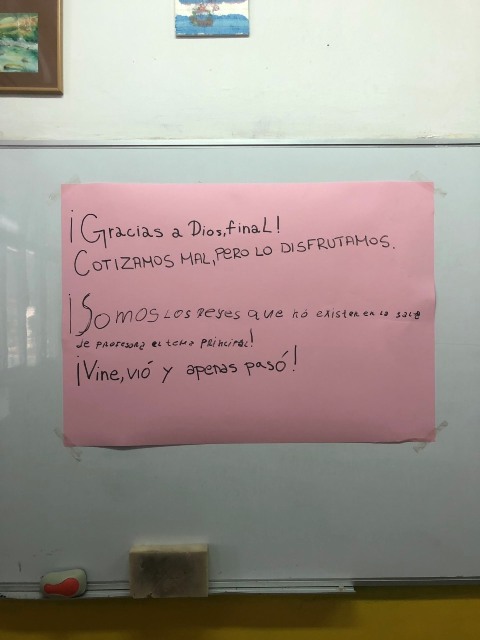 ¡Gracias a Dios, final!
COTIZAMOS MAL, PERO LO DISFRUTAMOS.
¡Somos los reyes que no existen en la sala
de profesora el tema principal!
¡Vine, vió y apenas pasó!